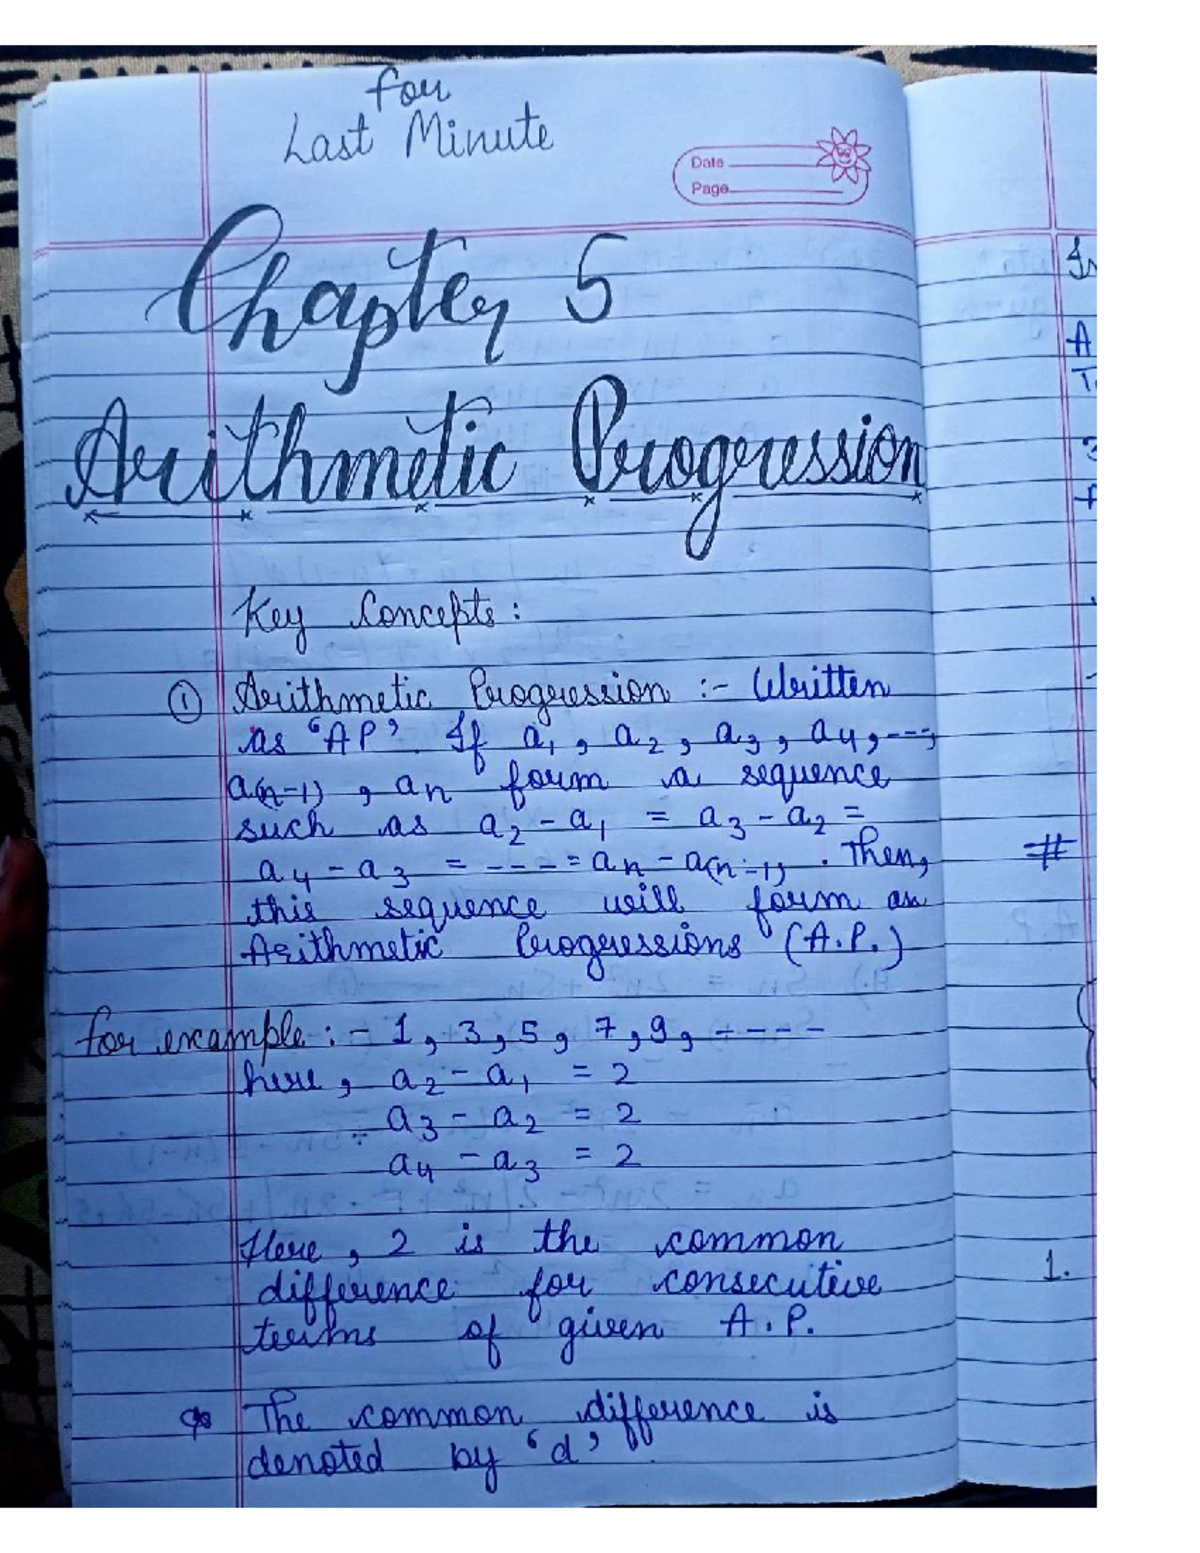 for
Last Minute
Date
Page
Chapter 5
Arithmetic Progression
Key Concepts :
① Arithmetic Progression :- Written
as 'AP'. If a₁ , a₂ , a₃ , a₄ , ---,
a(n-1) , an form a sequence
such as a₂ - a₁ = a₃ - a₂ =
a₄ - a₃ = ---- = an - a(n-1) . Then,
this sequence will form an
Arithmetic Progressions (A.P.)
for example : - 1, 3, 5, 7, 9, ----
here , a₂ - a₁ = 2
a₃ - a₂ = 2
a₄ - a₃ = 2
Here , 2 is the common
difference for consecutive
terms of given A.P.
The common difference is
denoted by 'd'
A
#
1.